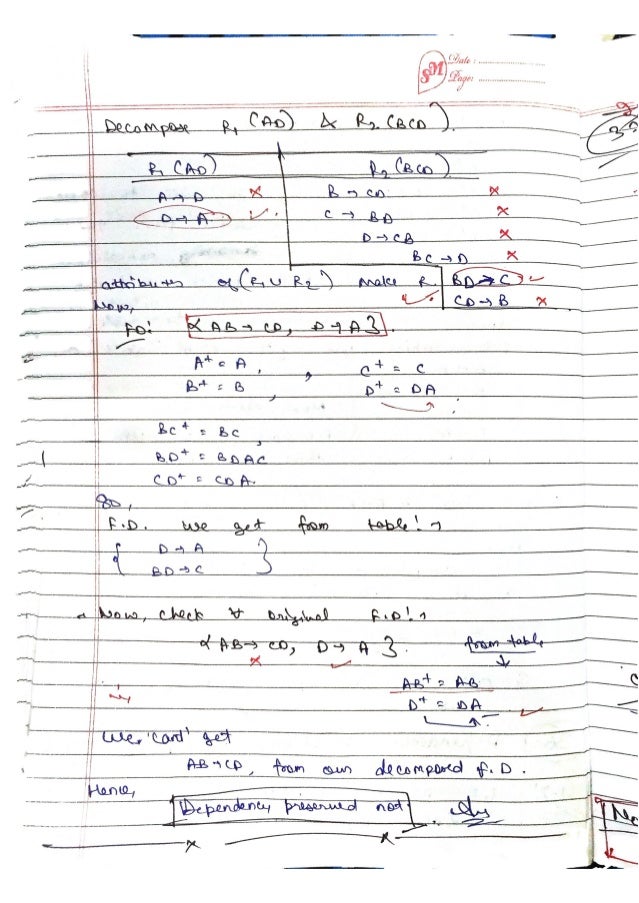 SM Date : ..............
Page: ..............
Decompose R₁ (AD) & R₂ (BCD).
R₁ (AD) R₂ (BCD)
A → D × B → CD ×
D → A ✓ C → BD ×
D → CB ×
BC → D ×
attributes of (R₁ ∪ R₂) make R. ✓ BD → C ✓
Now, CD → B ×
FD: {AB → CD, D → A}.
A⁺ = A, C⁺ = C
B⁺ = B, D⁺ = DA
BC⁺ = BC,
BD⁺ = BDAC
CD⁺ = CDA.
So,
F.D. we get from table! →
{ D → A
BD → C }
Now, check ∀ original F.D! →
{AB → CD, D → A}. from table
× ✓ ↓
AB⁺ = AB
D⁺ = DA ✓
We 'cant' get
AB → CD, from our decomposed f.D.
Hence,
Dependency preserved not. Ans